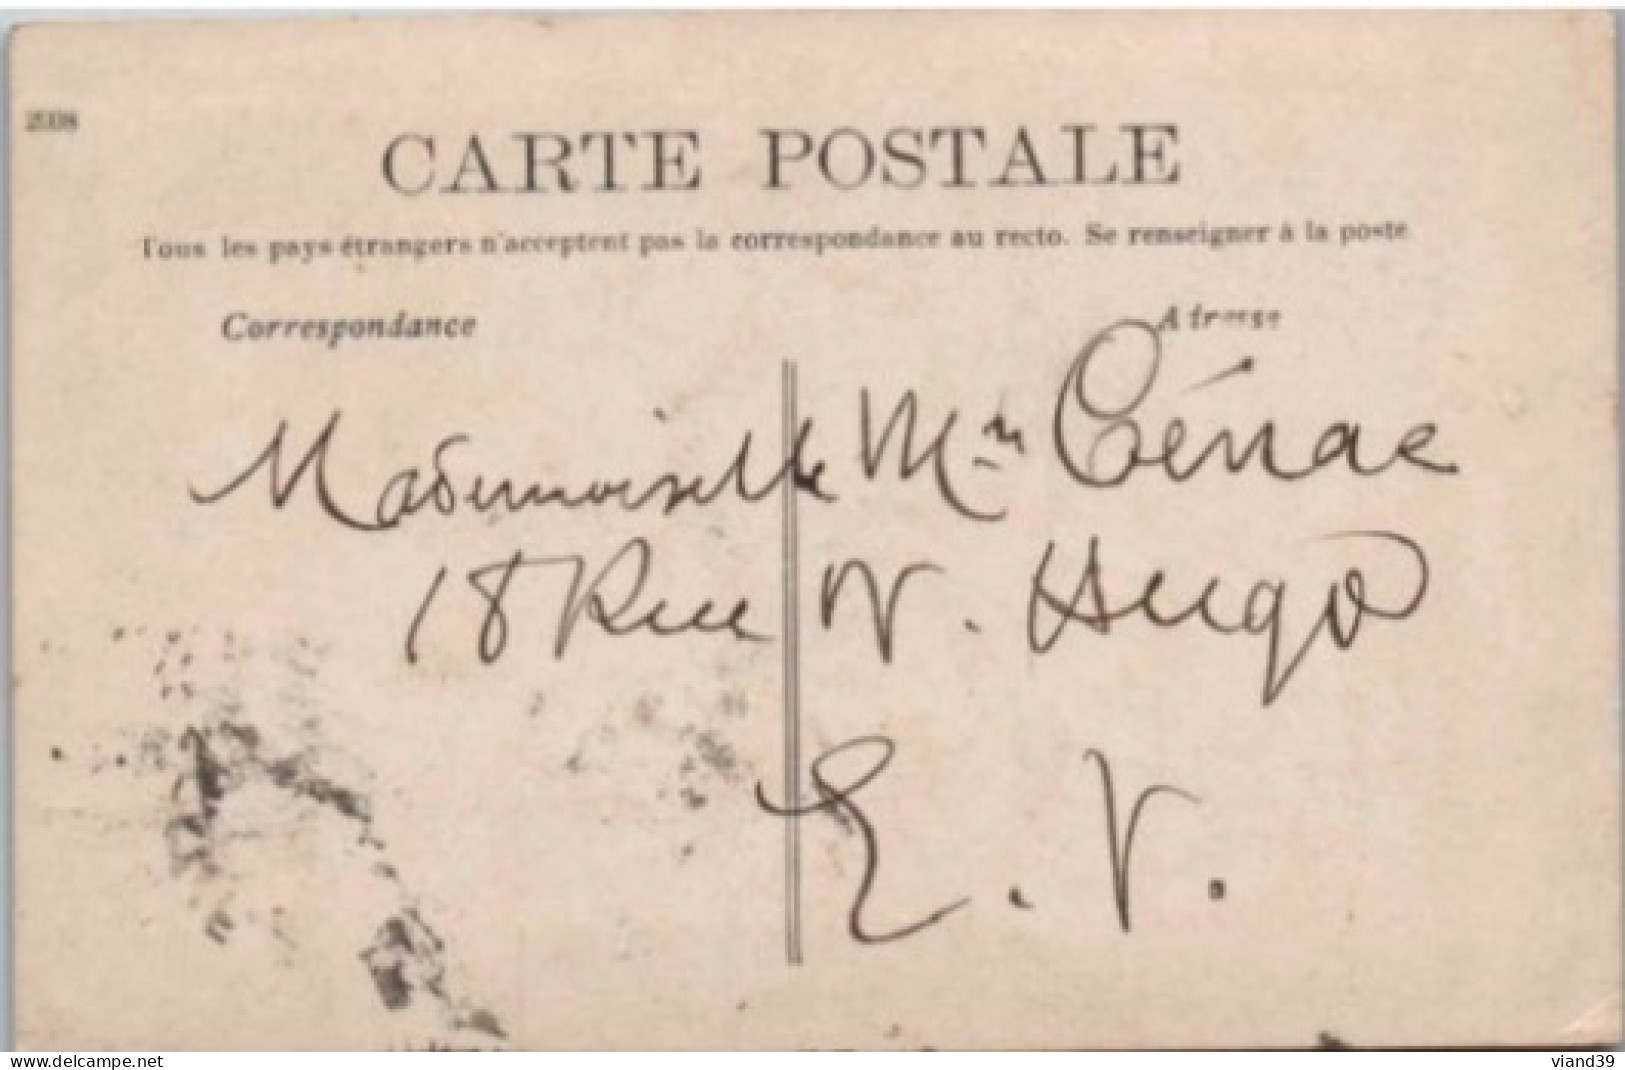 CARTE POSTALE
Tous les pays étrangers n'acceptent pas la correspondance au recto. Se renseigner à la poste
Correspondance
Adresse
Mademoiselle Mn Cénac
18 Rue V. Hugo
E. V.
www.delcampe.net
viand39